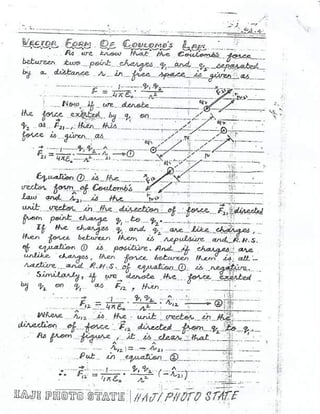 VECTOR FORM OF COULOMB'S LAW
As we know that the Coulomb's force
between two point charges q₁ and q₂ separated
by a distance r in free space is given as
F = 1/4πε₀ q₁q₂/r²
Now if we denote
the force exerted by q₁ on
q₂ as F⃗₂₁, then this
force is given as
F⃗₂₁ = 1/4πε₀ q₁q₂/r² r̂₂₁ → ①
Equation ① is the
vector form of Coulomb's
law and r̂₂₁ is the
unit vector in the direction of force F⃗₂₁ directed
from point charge q₁ to q₂.
If the charges q₁ and q₂ are like charges,
then force between them is repulsive and R.H.S.
of equation ① is positive. And if charges are
unlike charges, then force between them is att-
ractive and R.H.S. of equation ① is negative.
Similarly, if we denote the force exerted
by q₂ on q₁ as F⃗₁₂, then
F⃗₁₂ = 1/4πε₀ q₁q₂/r² r̂₁₂ → ②
Where r̂₁₂ is the unit vector in the
direction of force F⃗₁₂ directed from q₂ to q₁.
As from figure, it is clear that
r̂₁₂ = - r̂₂₁
Put in equation ②
∴ F⃗₁₂ = 1/4πε₀ q₁q₂/r² (-r̂₂₁)
HAJI PHOTO STATE HAJI PHOTO STATE